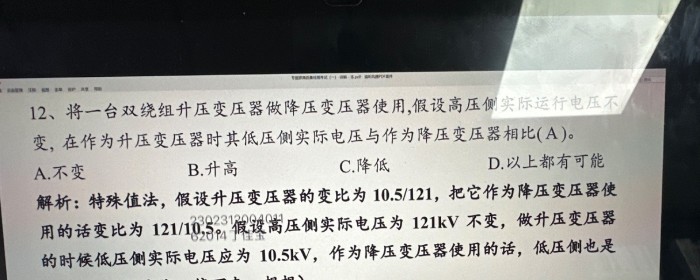 12、将一台双绕组升压变压器做降压变压器使用,假设高压侧实际运行电压不
变, 在作为升压变压器时其低压侧实际电压与作为降压变压器相比( A )。
A.不变 B.升高 C.降低 D.以上都有可能
解析：特殊值法，假设升压变压器的变比为 10.5/121，把它作为降压变压器使
用的话变比为 121/10.5。假设高压侧实际电压为 121kV 不变，做升压变压器
的时候低压侧实际电压应为 10.5kV，作为降压变压器使用的话，低压侧也是